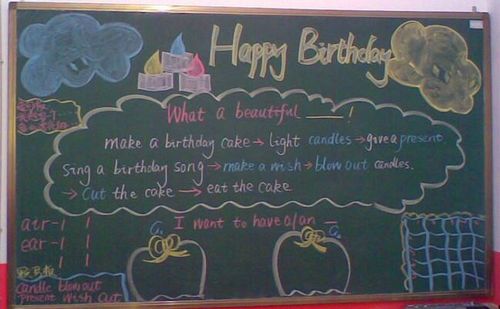 Happy Birthday
What a beautiful ____!
make a birthday cake → light candles → give a present
Sing a birthday song → make a wish → blow out candles.
→ Cut the cake → eat the cake
I want to have a/an _
air-
ear-
G1
G2
candle blow out
present wish cut